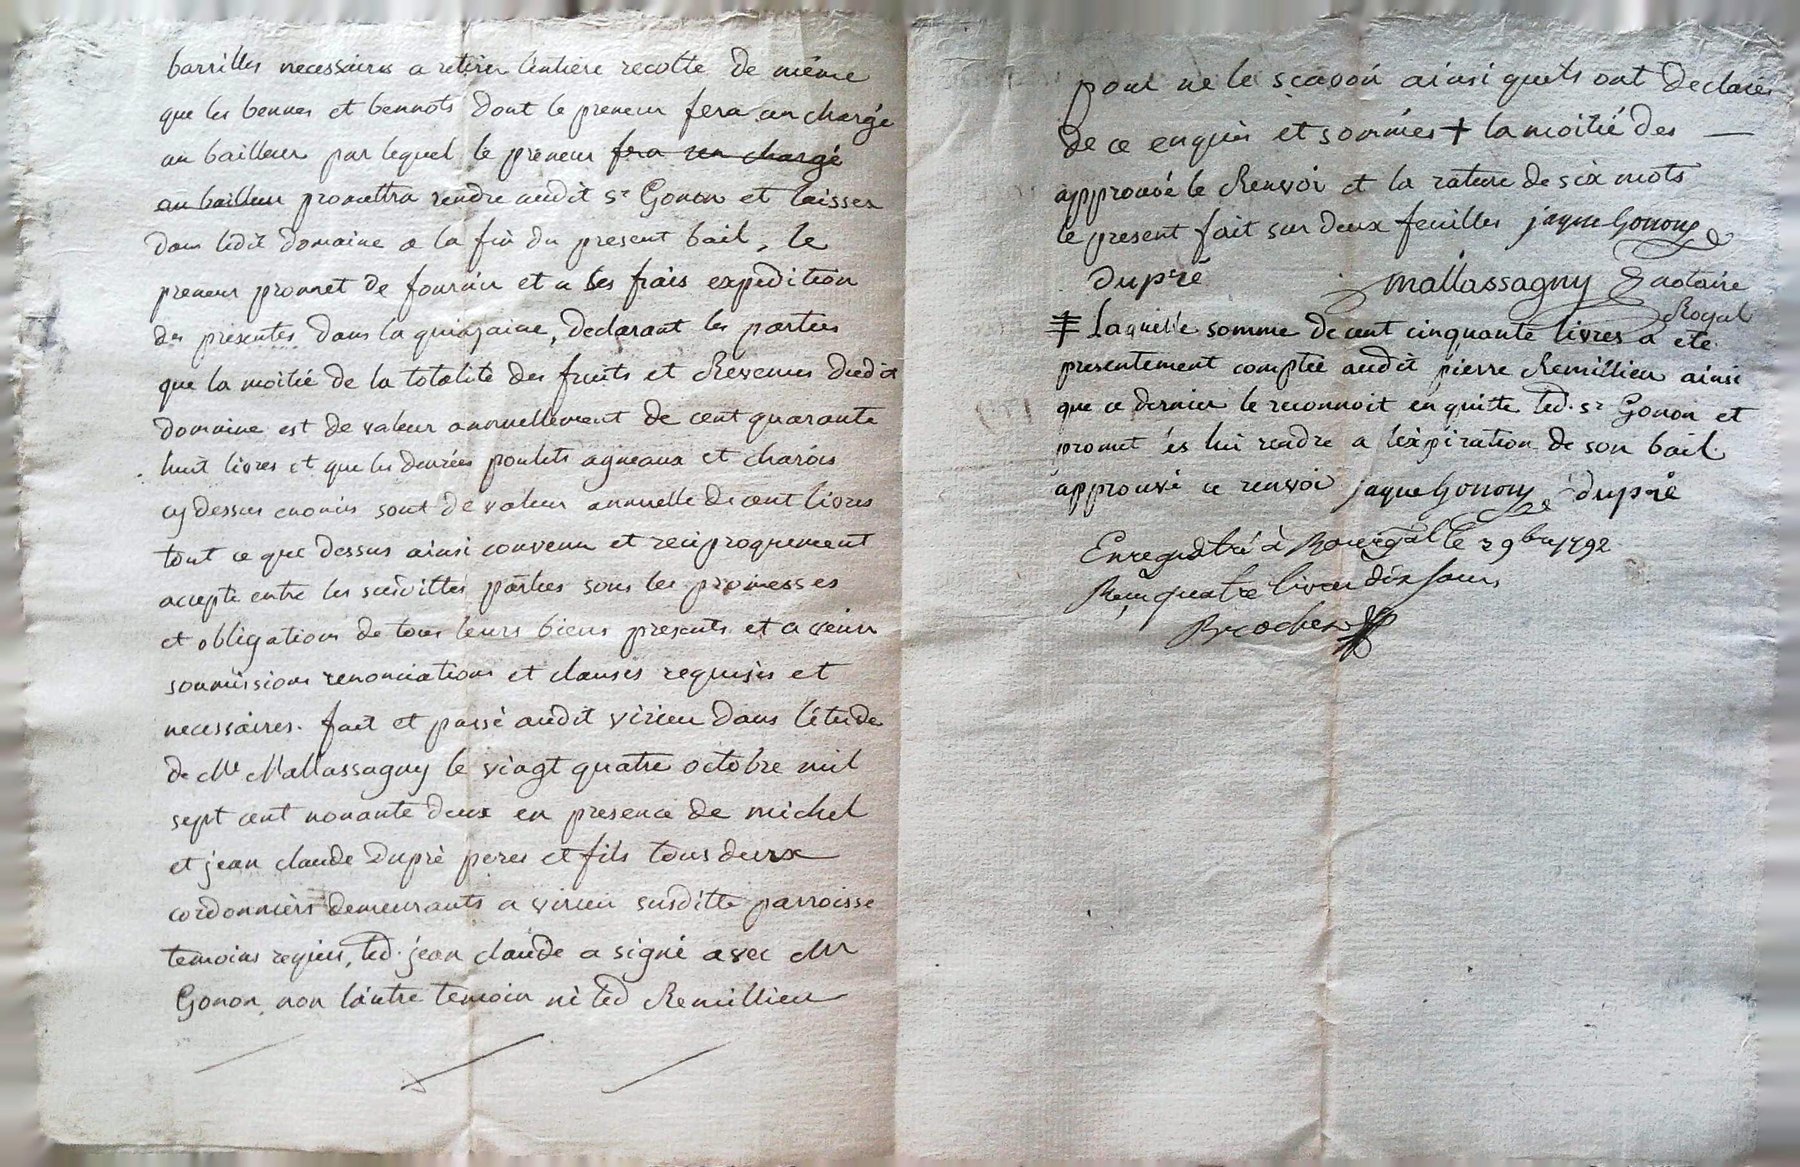 barrilles necessaires a retirer l'entiere recolte de même
que les bennes et bennots dont le preneur fera un chargé
au bailleur par lequel le preneur fera un chargé
au bailleur promettra rendre audit sr Gonon et laisser
dans ledit domaine a la fin du present bail, le
preneur promet de fournir et a ses frais expedition
des presentes dans la quinzaine, declarant les parties
que la moitié de la totalité des fruits et Revenus dudit
domaine est de valeur annuellement de cent quarante
huit livres et que les denrées poulets agneaux et charois
cy dessus enoncés sont de valeur annuelle de cent livres
tout ce que dessus ainsi convenu et reciproquement
accepté entre les susdittes parties sous les promesses
et obligations de tous leurs biens presents et a venir
soumissions renonciations et clauses requises et
necessaires. fait et passé audit virieu dans l'étude
de Me Mallassagny le vingt quatre octobre mil
sept cent nonante deux en presence de michel
et jean claude Dupré peres et fils tous deux
cordonniers demeurants a virieu susditte parroisse
temoins requis, led. jean claude a signé avec Mr
Gonon non l'autre temoin ni led Remillieu
pour ne le scavoir ainsi quils ont declarés
de ce enquis et sommés + la moitié des —
approuvé le Renvoi et la rature de six mots
le present fait sur deux feuilles jaque Gonon
dupré mallassagny notaire
Royal
Laquelle somme de cent cinquante livres a eté
presentement comptée audit pierre Remillieu ainsi
que ce dernier le reconnoit en quitte led. sr Gonon et
promet les lui rendre a l'expiration de son bail.
approuvé ce renvoi jaque Gonon dupré
Enregistré à Bourgal le 2 9bre 1792
Reçu quatre livres dix sous
Brochet